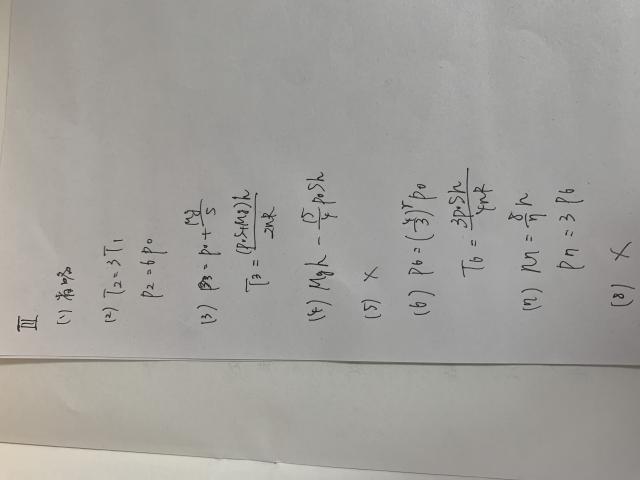 III
(1) 省略
(2) T2 = 3T1
p2 = 6p0
(3) p3 = p0 + Mg/S
T3 = (p0S+Mg)h/2nR
(4) Mgh − 15/4 p0Sh
(5) ×
(6) p6 = (4/3)^r p0
T6 = 3p0Sh/4nR
(7) h7 = 8/7 h
p7 = 3 p6
(8) ×